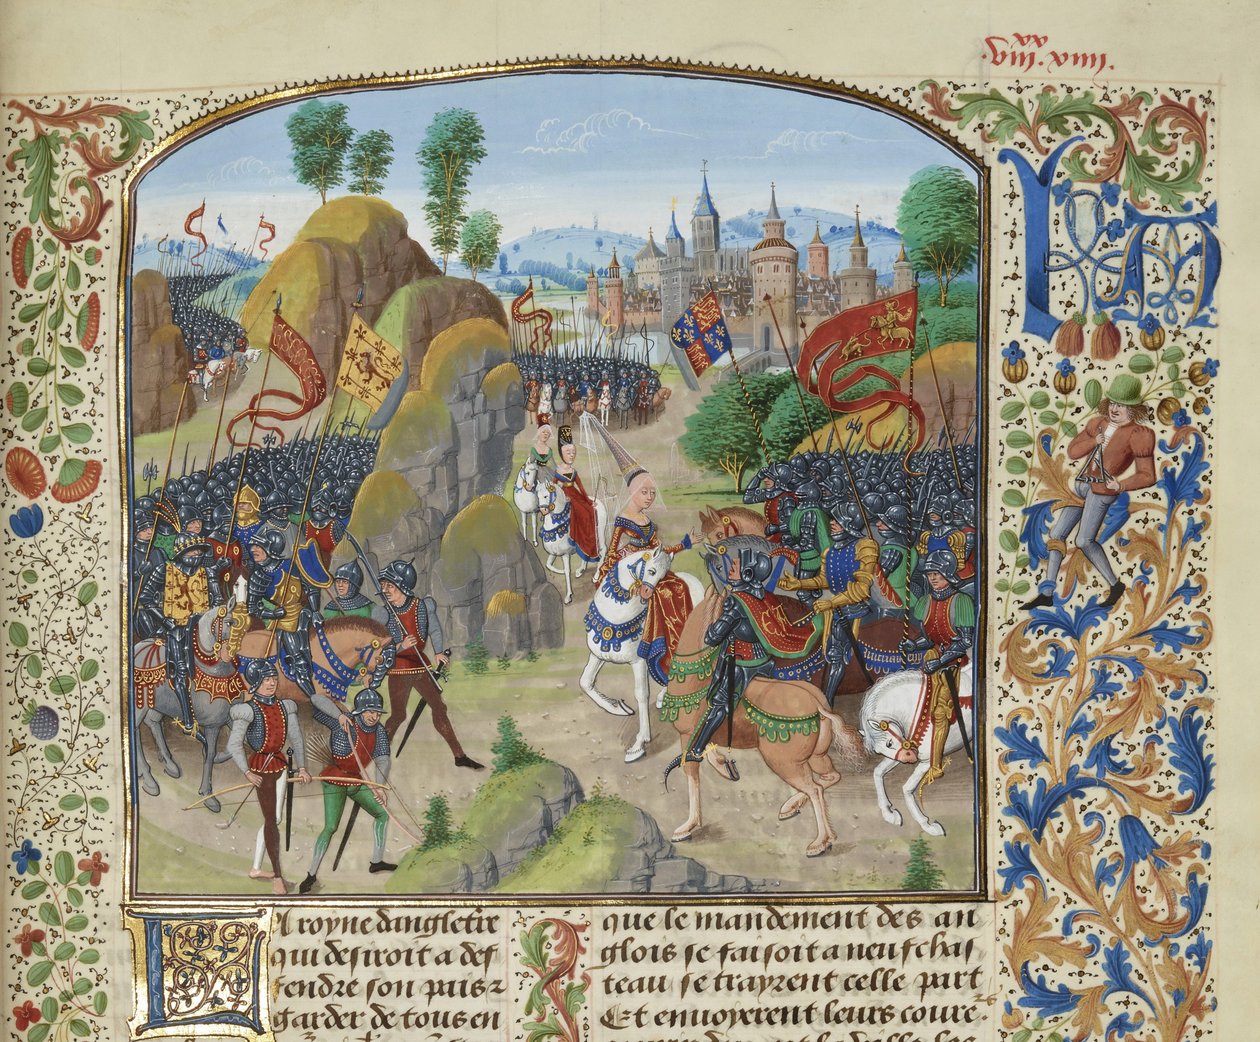 La royne dangleterre
qui desiroit a def
fendre son pais
garder de tous en
que le mandement des an
glois se faisoit a neufchas
teau se trayrent celle part
Et enuoyerent leurs coure